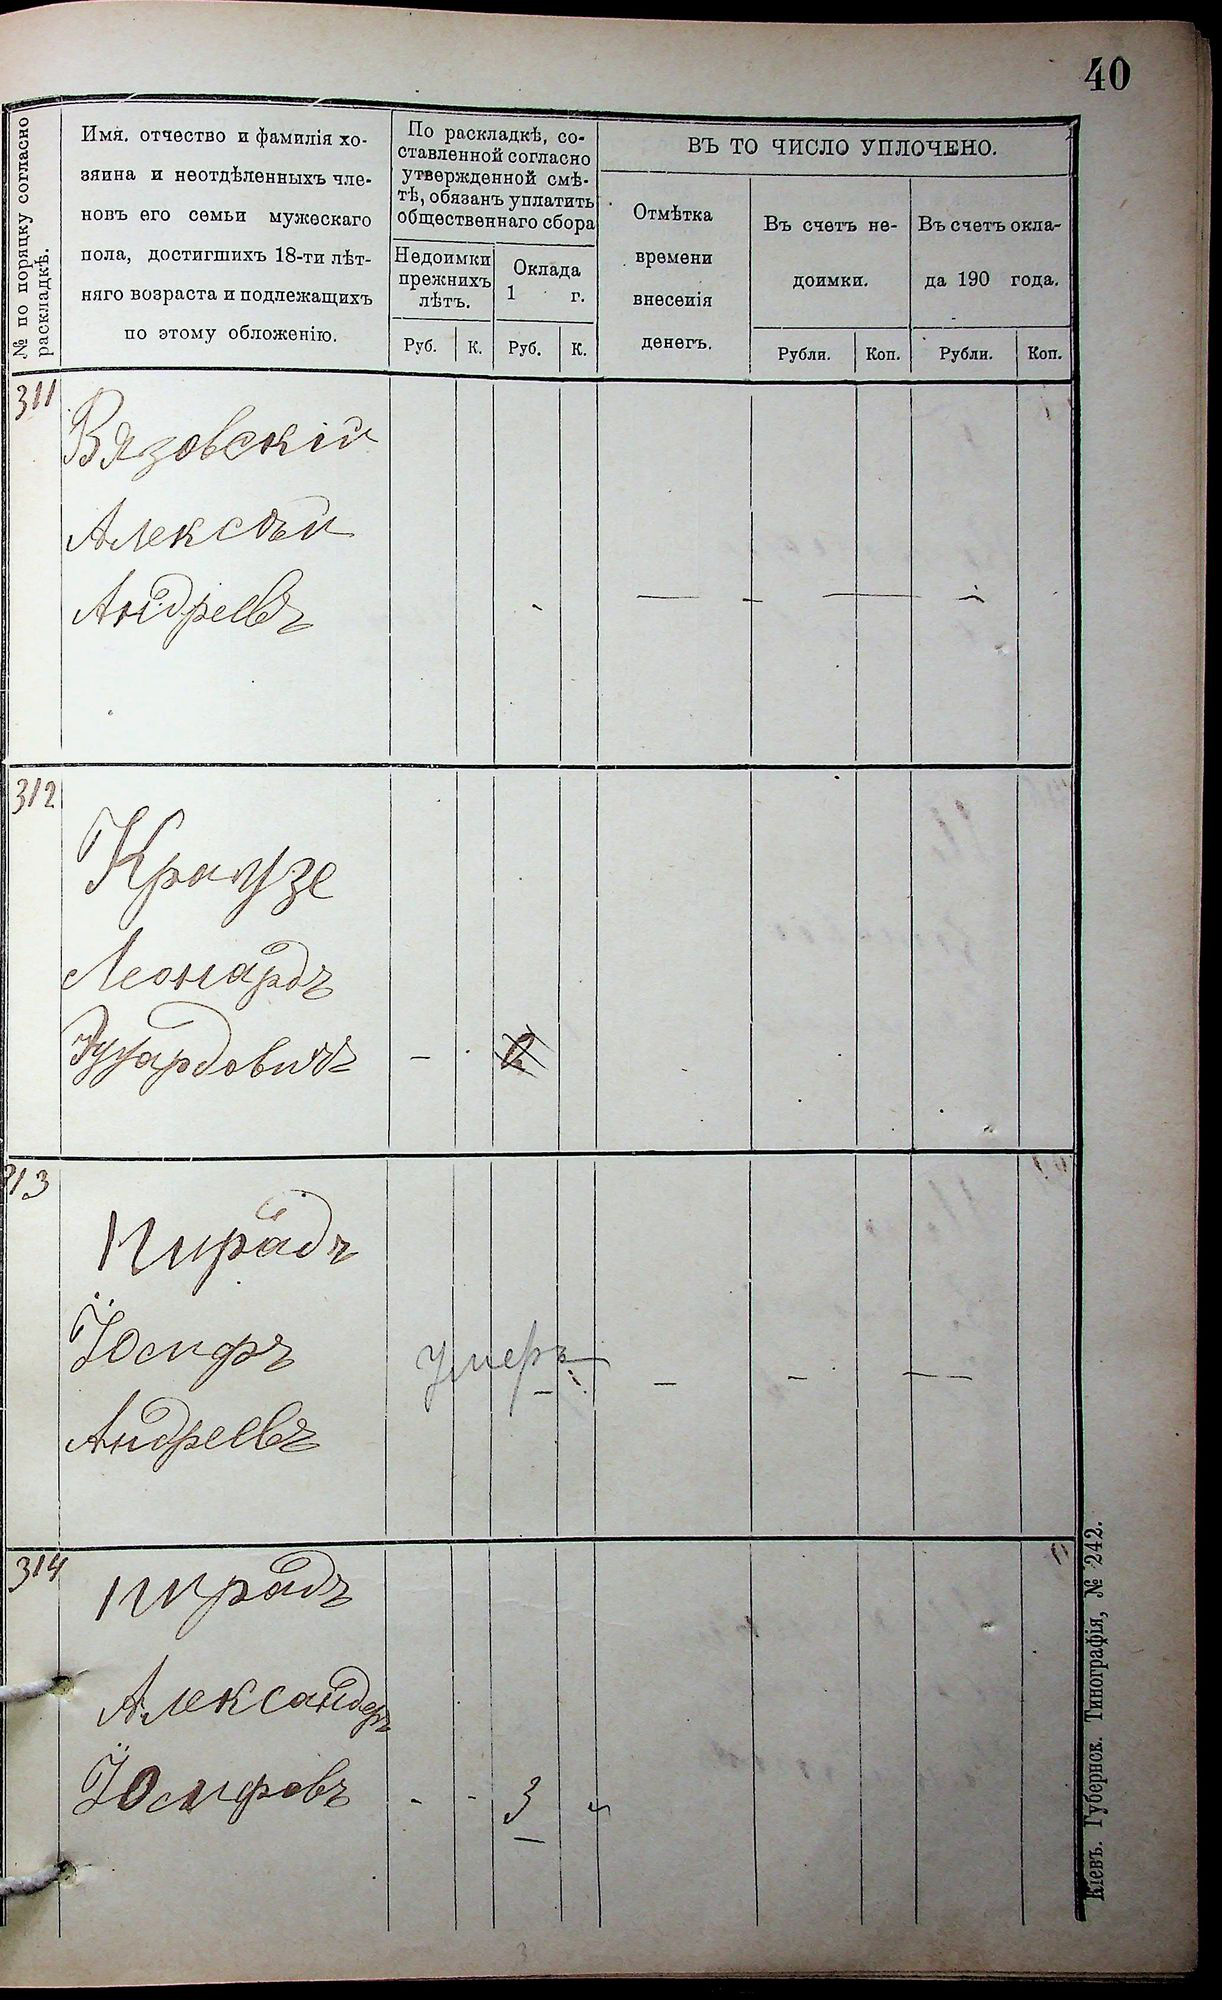 40
№ по поряцку согласно
раскладкѣ.
Имя. отчество и фамилія хо-
зяина и неотдѣленныхъ чле-
новъ его семьи мужескаго
пола, достигшихъ 18-ти лѣт-
няго возраста и подлежащихъ
по этому обложенію.
По раскладкѣ, со-
ставленной согласно
утвержденной смѣ-
тѣ, обязанъ уплатить
общественнаго сбора
Недоимки
прежнихъ
лѣтъ.
Оклада
1 г.
Руб. К. Руб. К.
ВЪ ТО ЧИСЛО УПЛОЧЕНО.
Отмѣтка
времени
внесенія
денегъ.
Въ счетъ не-
доимки.
Въ счетъ окла-
да 190 года.
Рубли. Коп. Рубли. Коп.
311
Вязовскій
Алексѣй
Андреевъ
312
Краузе
Леонардъ
Эдуардовичъ - 2
313
Пирадъ
Іосифъ
умеръ
Андреевъ
314
Пирадъ
Александеръ
Іосифовъ - - 3
Кіевъ. Губернск. Типографія, № 242.